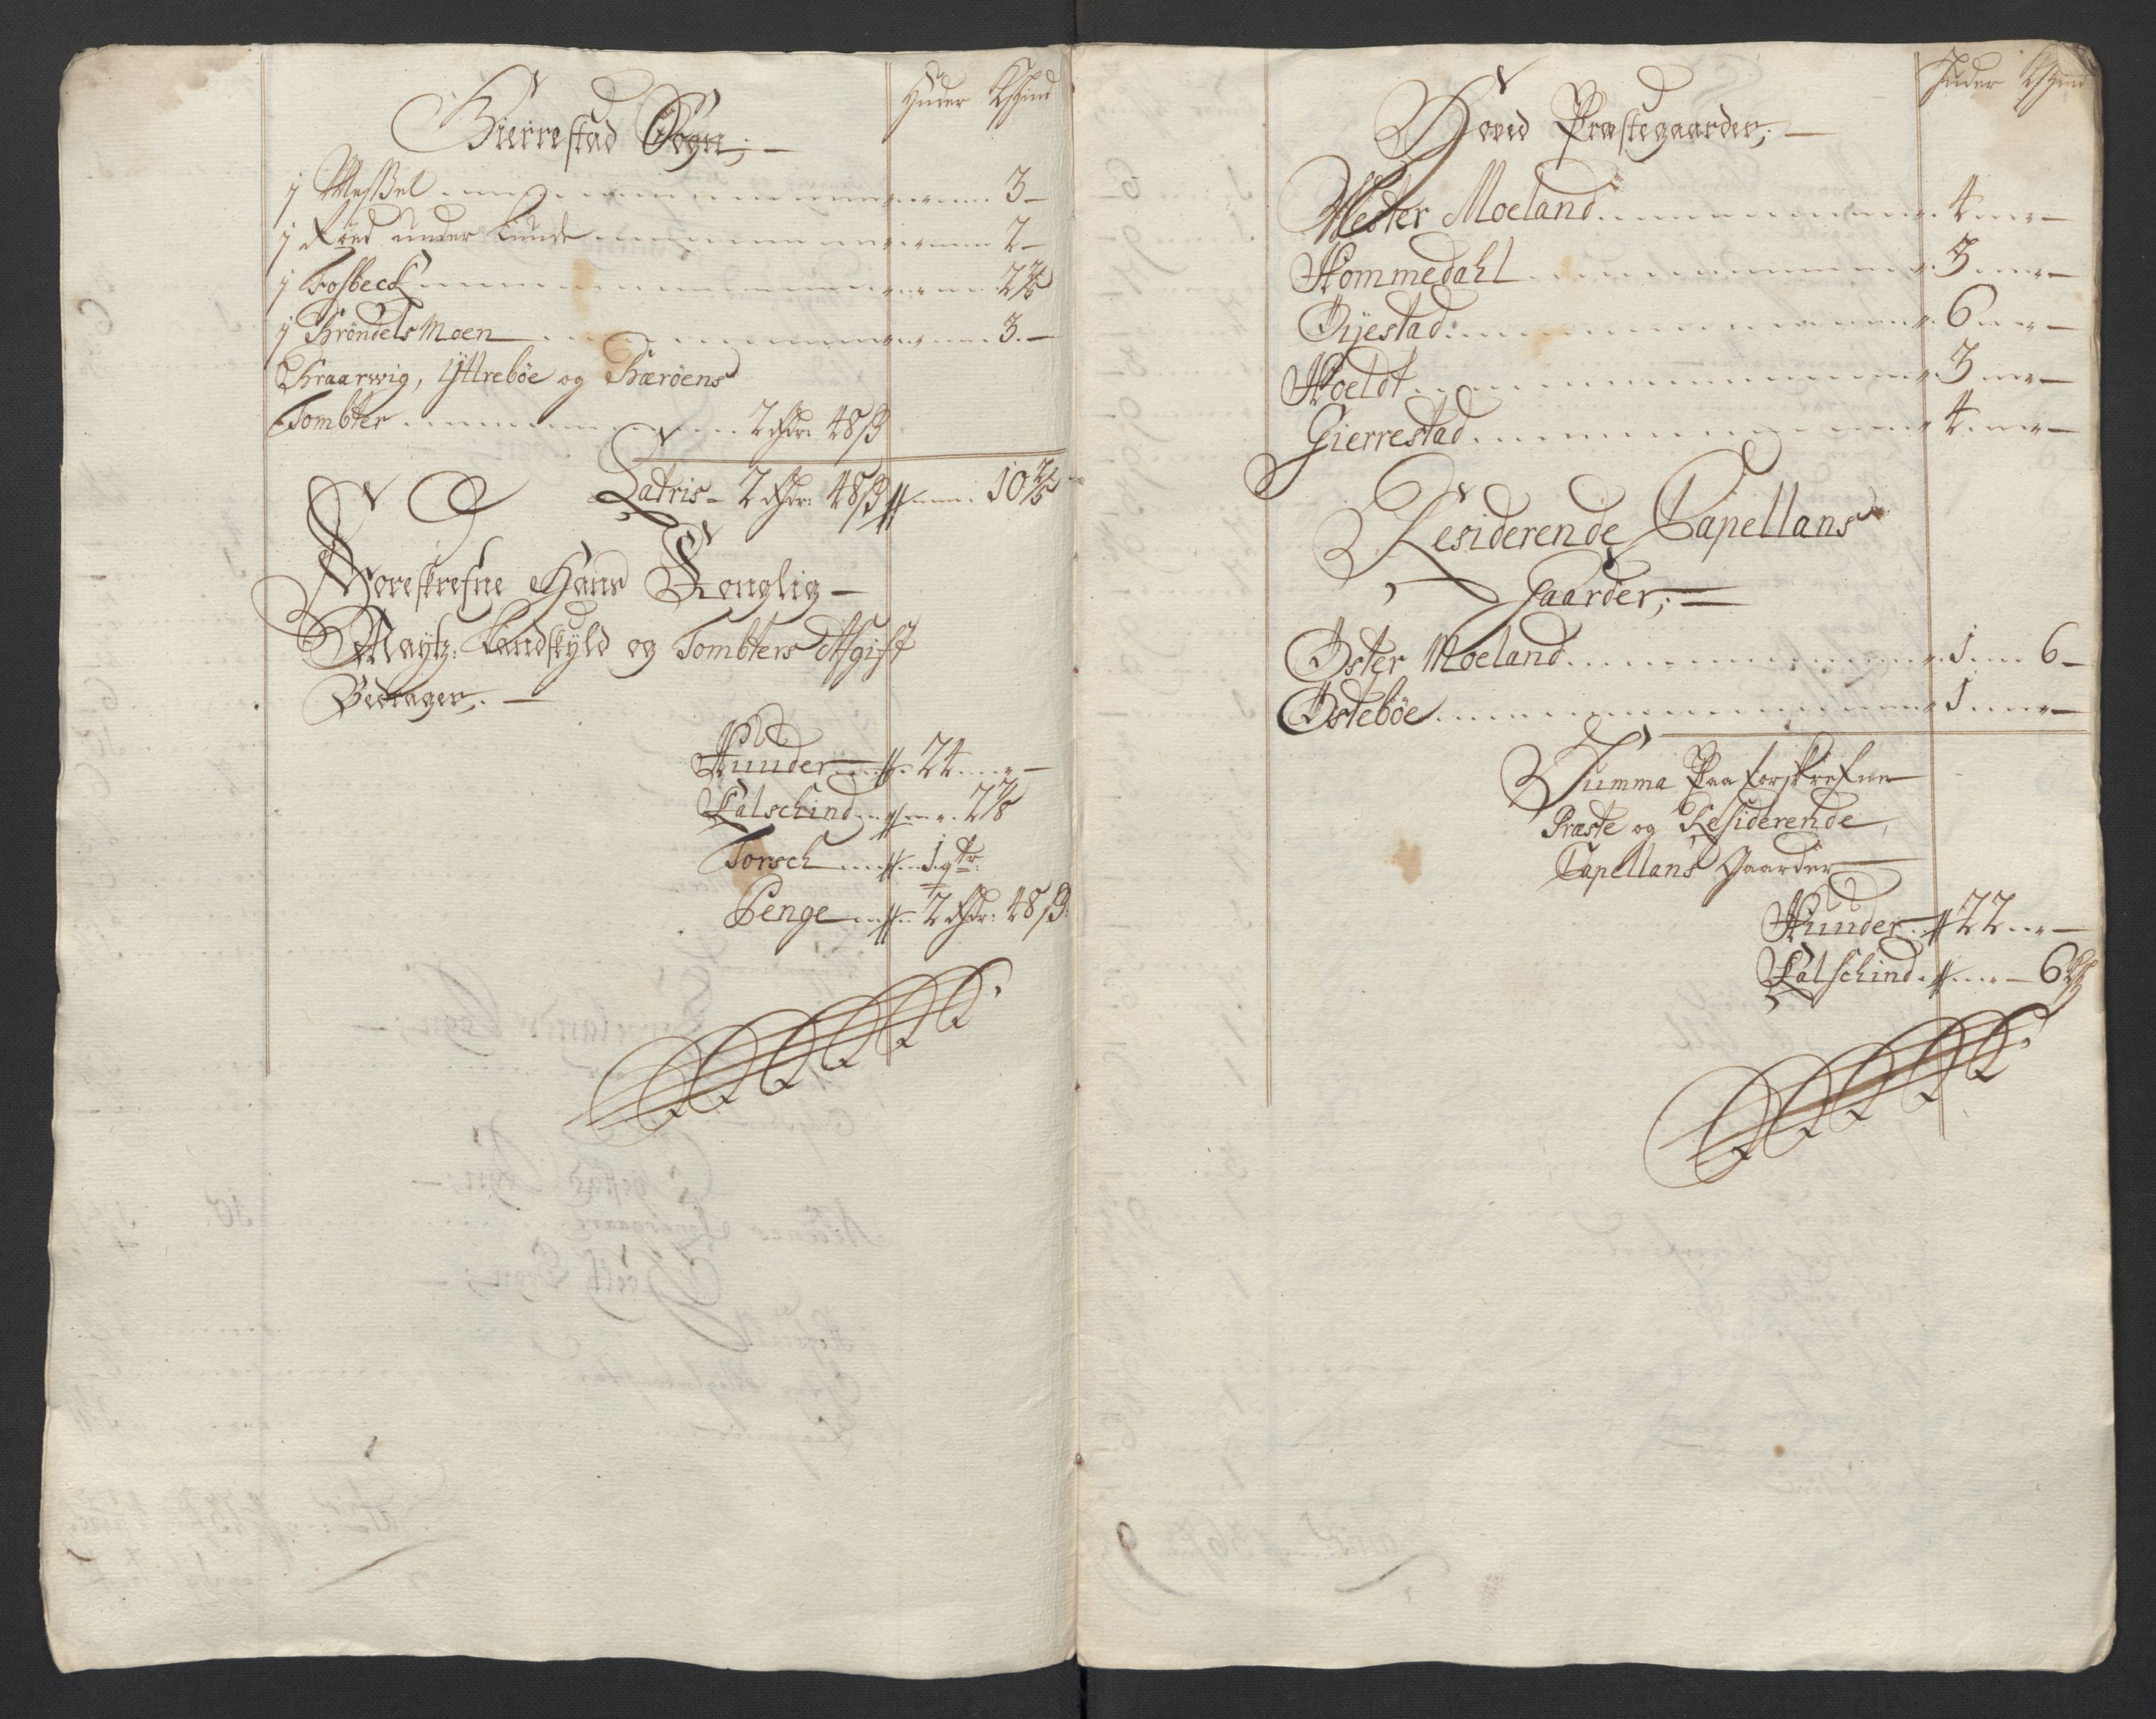 Huder Kschind
Gierrestad Sogn;
j Messel 3
j Röed under Lunde 2
j Fosbeck 2 2/5
j Thröndels Moen 3
Kraarwig, Yttrebøe og Kærøens
Tombter 2 Rdr: 48 ß
Latris 2 Rdr: 48 ß 10 2/5
Forreskrefne Hans Konglig
Mayts: Landskyld og Tombters Afgift
Bedrager;
Huuder 24
Kalschind 2
Torsch 1 qtr
Penge 2 Rdr: 48 ß
Huder Kschind
Hoved Præstegaarder;
Wester Moeland 4
Hommedahl 3
Øyestad 6
Hoeldt 3
Gierrestad 4
Residerende Capellans
Gaarder;
Øster Moeland 1 6
Østebøe 1
Summa Paa forskrefne
Præste og Residerende
Capellans Gaarder
Huuder 22
Kalschind 6